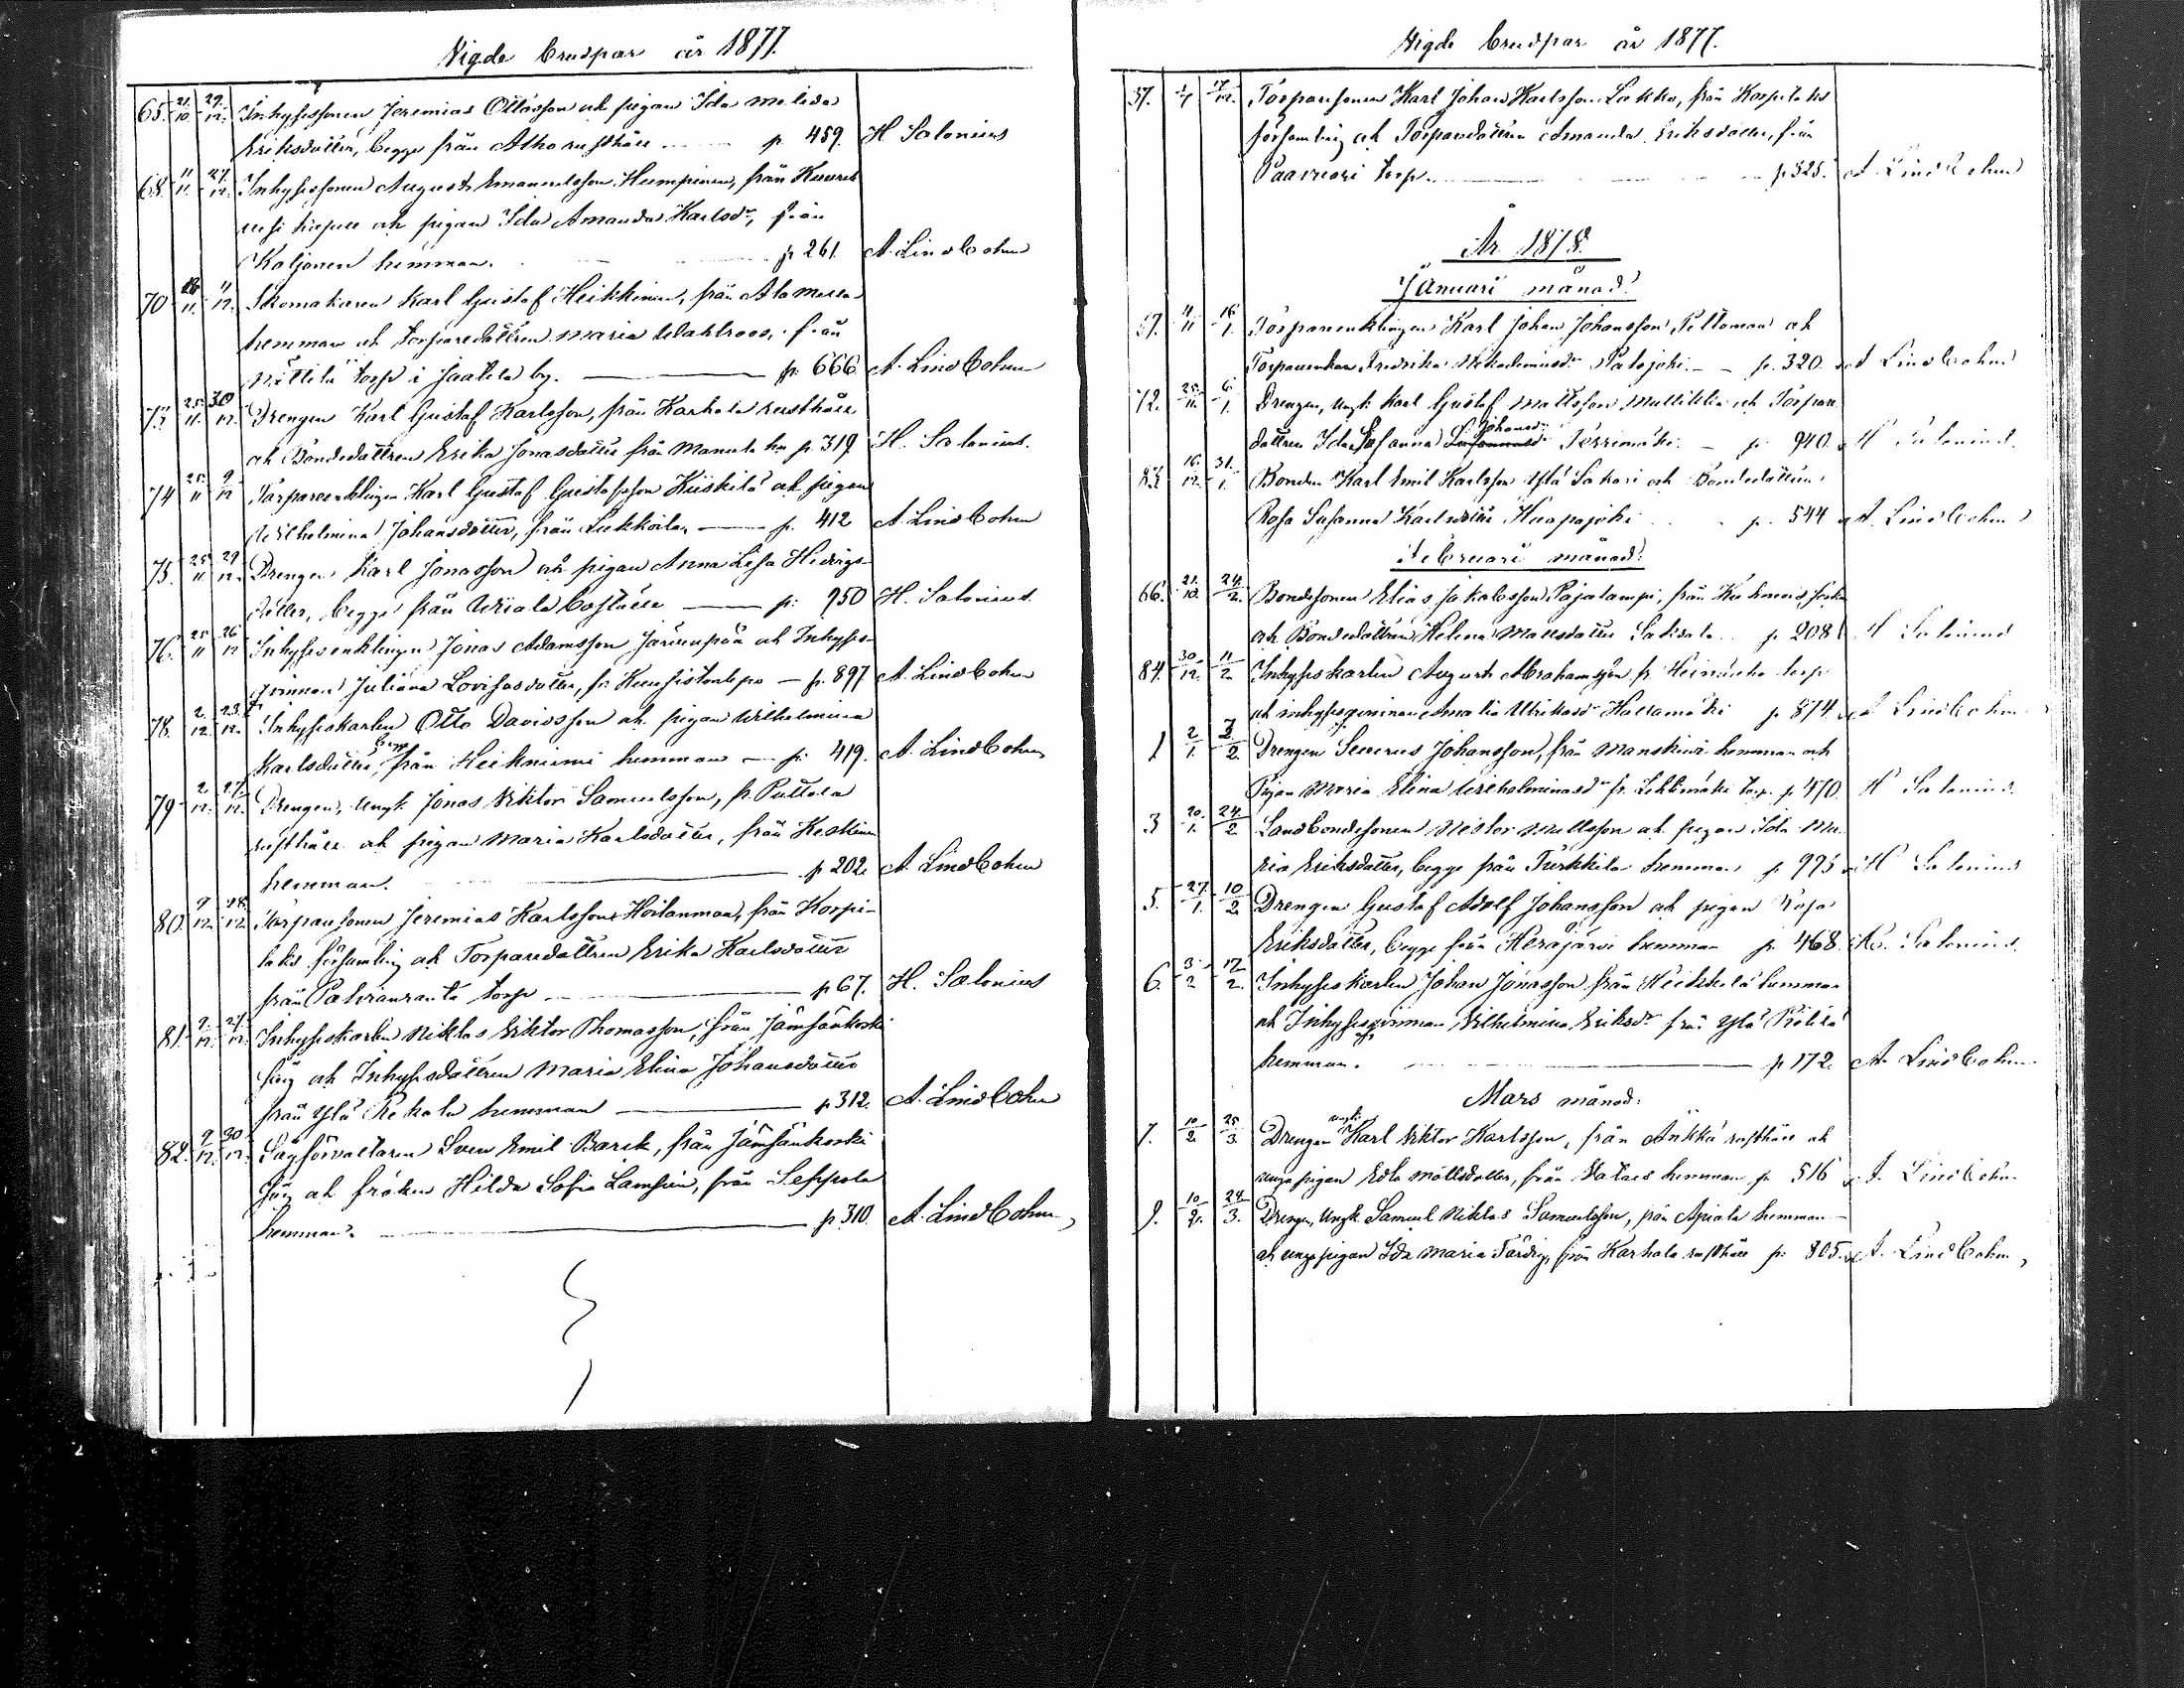 Vigde brudpar år 1877.
65. 21/10. 29/12. Inhysessonen Jeremias Ottosson och pigan Ida Matilda
Eriksdotter, begge från Alho rusthåll p. 459. H. Salonius
68. 11/11. 27/12. Inhysessonen August Emanuelsson Humpinen, från
och pigan Ida Amanda Karlsdr, från
Koljonen hemman. p. 261. A. Lindbohm
70 18/11. 11/12. Skomakaren Karl Gustaf Heikkinen, från
hemman och torparedottren Maria Wahlroos, från
Nättilä torp i Jaatila by. p. 666 A. Lindbohm
73. 25/11. 30/12. Drengen Karl Gustaf Karlsson, från Karhola rusthåll
och Bondedottren Erika Jonasdotter från p. 319. H. Salonius.
74 25/11 9/12 Torpareenklingen Karl Gustaf Gustafsson Kiiskilä och pigan
Wilhelmina Johansdotter, från p. 412 A. Lindbohm
75. 25/11 29/12. Drengen Karl Jonasson och pigan Anna Lisa Hedvigs-
dotter, begge från Wiiala boställe p. 950 H. Salonius.
76. 25/11 26/12 Inhysesenklingen Jonas Adamsson Järvenpää och Inhyses-
qvinnan Juliana Lovisasdotter, fr. p. 897 A. Lindbohm
78. 2/12. 23/12. Inhyseskarlen Otto Davidsson och pigan Wilhelmina
Karlsdotter, begge från Heikniemi hemman p. 419. A. Lindbohm
79 2/12. 27/12. Drengen, Ungk. Jonas Viktor Samuelsson, fr. Puttola
rusthåll och pigan Maria Karlsdotter, från Keskinen
hemman. p. 202. A. Lindbohm
80. 9/12. 28/12 Torparesonen Jeremias Karlsson Hoilanmaa, från Korpi-
laks församling och Torparedottren Erika Karlsdotter
från Pahrianranta torp p. 67. H. Salonius
81. 9/12. 27/12. Inhyseskarlen Niklas Viktor Thomasson, från Jämsänkoski
såg och Inhysesdottren Maria Elina Johansdotter
från Ylä Rekola hemman p. 312. A. Lindbohm
82. 9/12. 30/12. Sågförvaltaren Sven Emil Barck, från Jämsänkoski
såg och fröken Hilda Sofia Lamsin, från Seppola
hemman. p. 310. A. Lindbohm
Vigde brudpar år 1877.
37. 17/12. Torparesonen Karl Johan Karlsson Lakka, från Korpilaks
församling och Torparedottren Amanda Eriksdotter, från
Paavuori torp. p. 325. A. Lindbohm
År 1878.
Januari månad.
57. 4/11 16/1. Torpareenklingen Karl Johan Johansson Peltomaa och
Torpareenkan Fredrika Palojoki p. 320. A. Lindbohm
72. 25/11. 6/1. Drengen, Ungk. Karl Gustaf Mattsson och Torpare-
dottren Ida Susanna Johansdr Perrimäki p. 940. H. Salonius.
83. 16/12. 31/1. Bonden Karl Emil Karlsson Ylä Sakari och Bondedottren
Rosa Susanna Karlsdotter Haapajoki p. 544 A. Lindbohm
Februari månad:
66. 21/10. 24/2. Bondesonen Elias Jakobsson Pajalampi, från Kuhmois, socken
och Bondedottren Helena Mattsdotter p. 208 H. Salonius
84. 30/12. 11/2 Inhyseskarlen August Abrahamsson fr. torp
och inhysesqvinnan Amalia Ulrikasdr Hallamäki p. 874. A. Lindbohm
1 2/1. 3/2. Drengen Severus Johansson, från Manskivi hemman och
Pigan Maria Elina Wilhelminasdr fr. Lehtimäki torp. p. 470. H. Salonius.
3 20/1. 24/2. Landbondesonen Nestor Mattsson och pigan Ida Ma-
ria Eriksdotter, begge från Turkkila hemman p. 995 H. Salonius
5. 27/1. 10/2. Drengen Gustaf Adolf Johansson och pigan Rosa
Eriksdotter, begge från Kerajärvi hemman p. 468. H. Salonius.
6. 3/2 17/2. Inhyseskarlen Johan Jonasson från Heikkilä hemman
och Inhysesqvinnan Wilhelmina Eriksdr från Ylä Pietilä
hemman. p. 172. A. Lindbohm
Mars månad.
7. 10/2. 25/3. Drengen ungk. Karl Viktor Karlsson, från Arkkä rusthåll och
unga pigan Edla Mattsdotter, från hemman p. 516 A. Lindbohm
9. 10/2. 24/3. Drengen, Ungk. Samuel Niklas Samuelsson, från Apiala hemman
och unga pigan Ida Maria Färdig, från Karhola rusthåll p. 805. A. Lindbohm